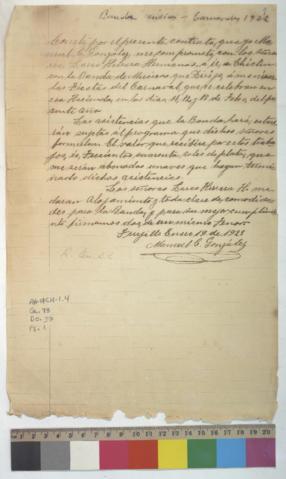 Banda música - Carnavales 1928
Consté por el presente contrato, que yo Ma-
nuel C. González, me comprometo con los Seño-
res Larco Herrera Hermanos, á ir, á Chiclín
con la Banda de Músicos que Dirijo, á amenizar
las Fiestas del Carnaval, que se celebran en e-
sa Hacienda en los dias 11, 12, y 13 de Febo, del pre-
sente año.
Las asistencias que la Banda hará, esta-
rán sujetas al programa que dichos señores
formulen. El valor que recibiré por estos traba-
jos, és, Trecientos cuarenta soles de plata, que
me serán abonados una vez que haya termi-
nado dichas asistencias.
Los señores Larco Herrera H. me
daran Alojamiento, y toda clase de comodida-
des para la Banda; y para su mejor cumplimi-
ento firmamos dos de un mismo tenor.
Trujillo Enero 19 de 1928
Manuel C. González
AA-HCH-1.4
Ca. 93
Do. 39
Pg. 1
1 2 3 4 5 6 7 8 9 10 11 12 13 14 15 16 17 18 19 20